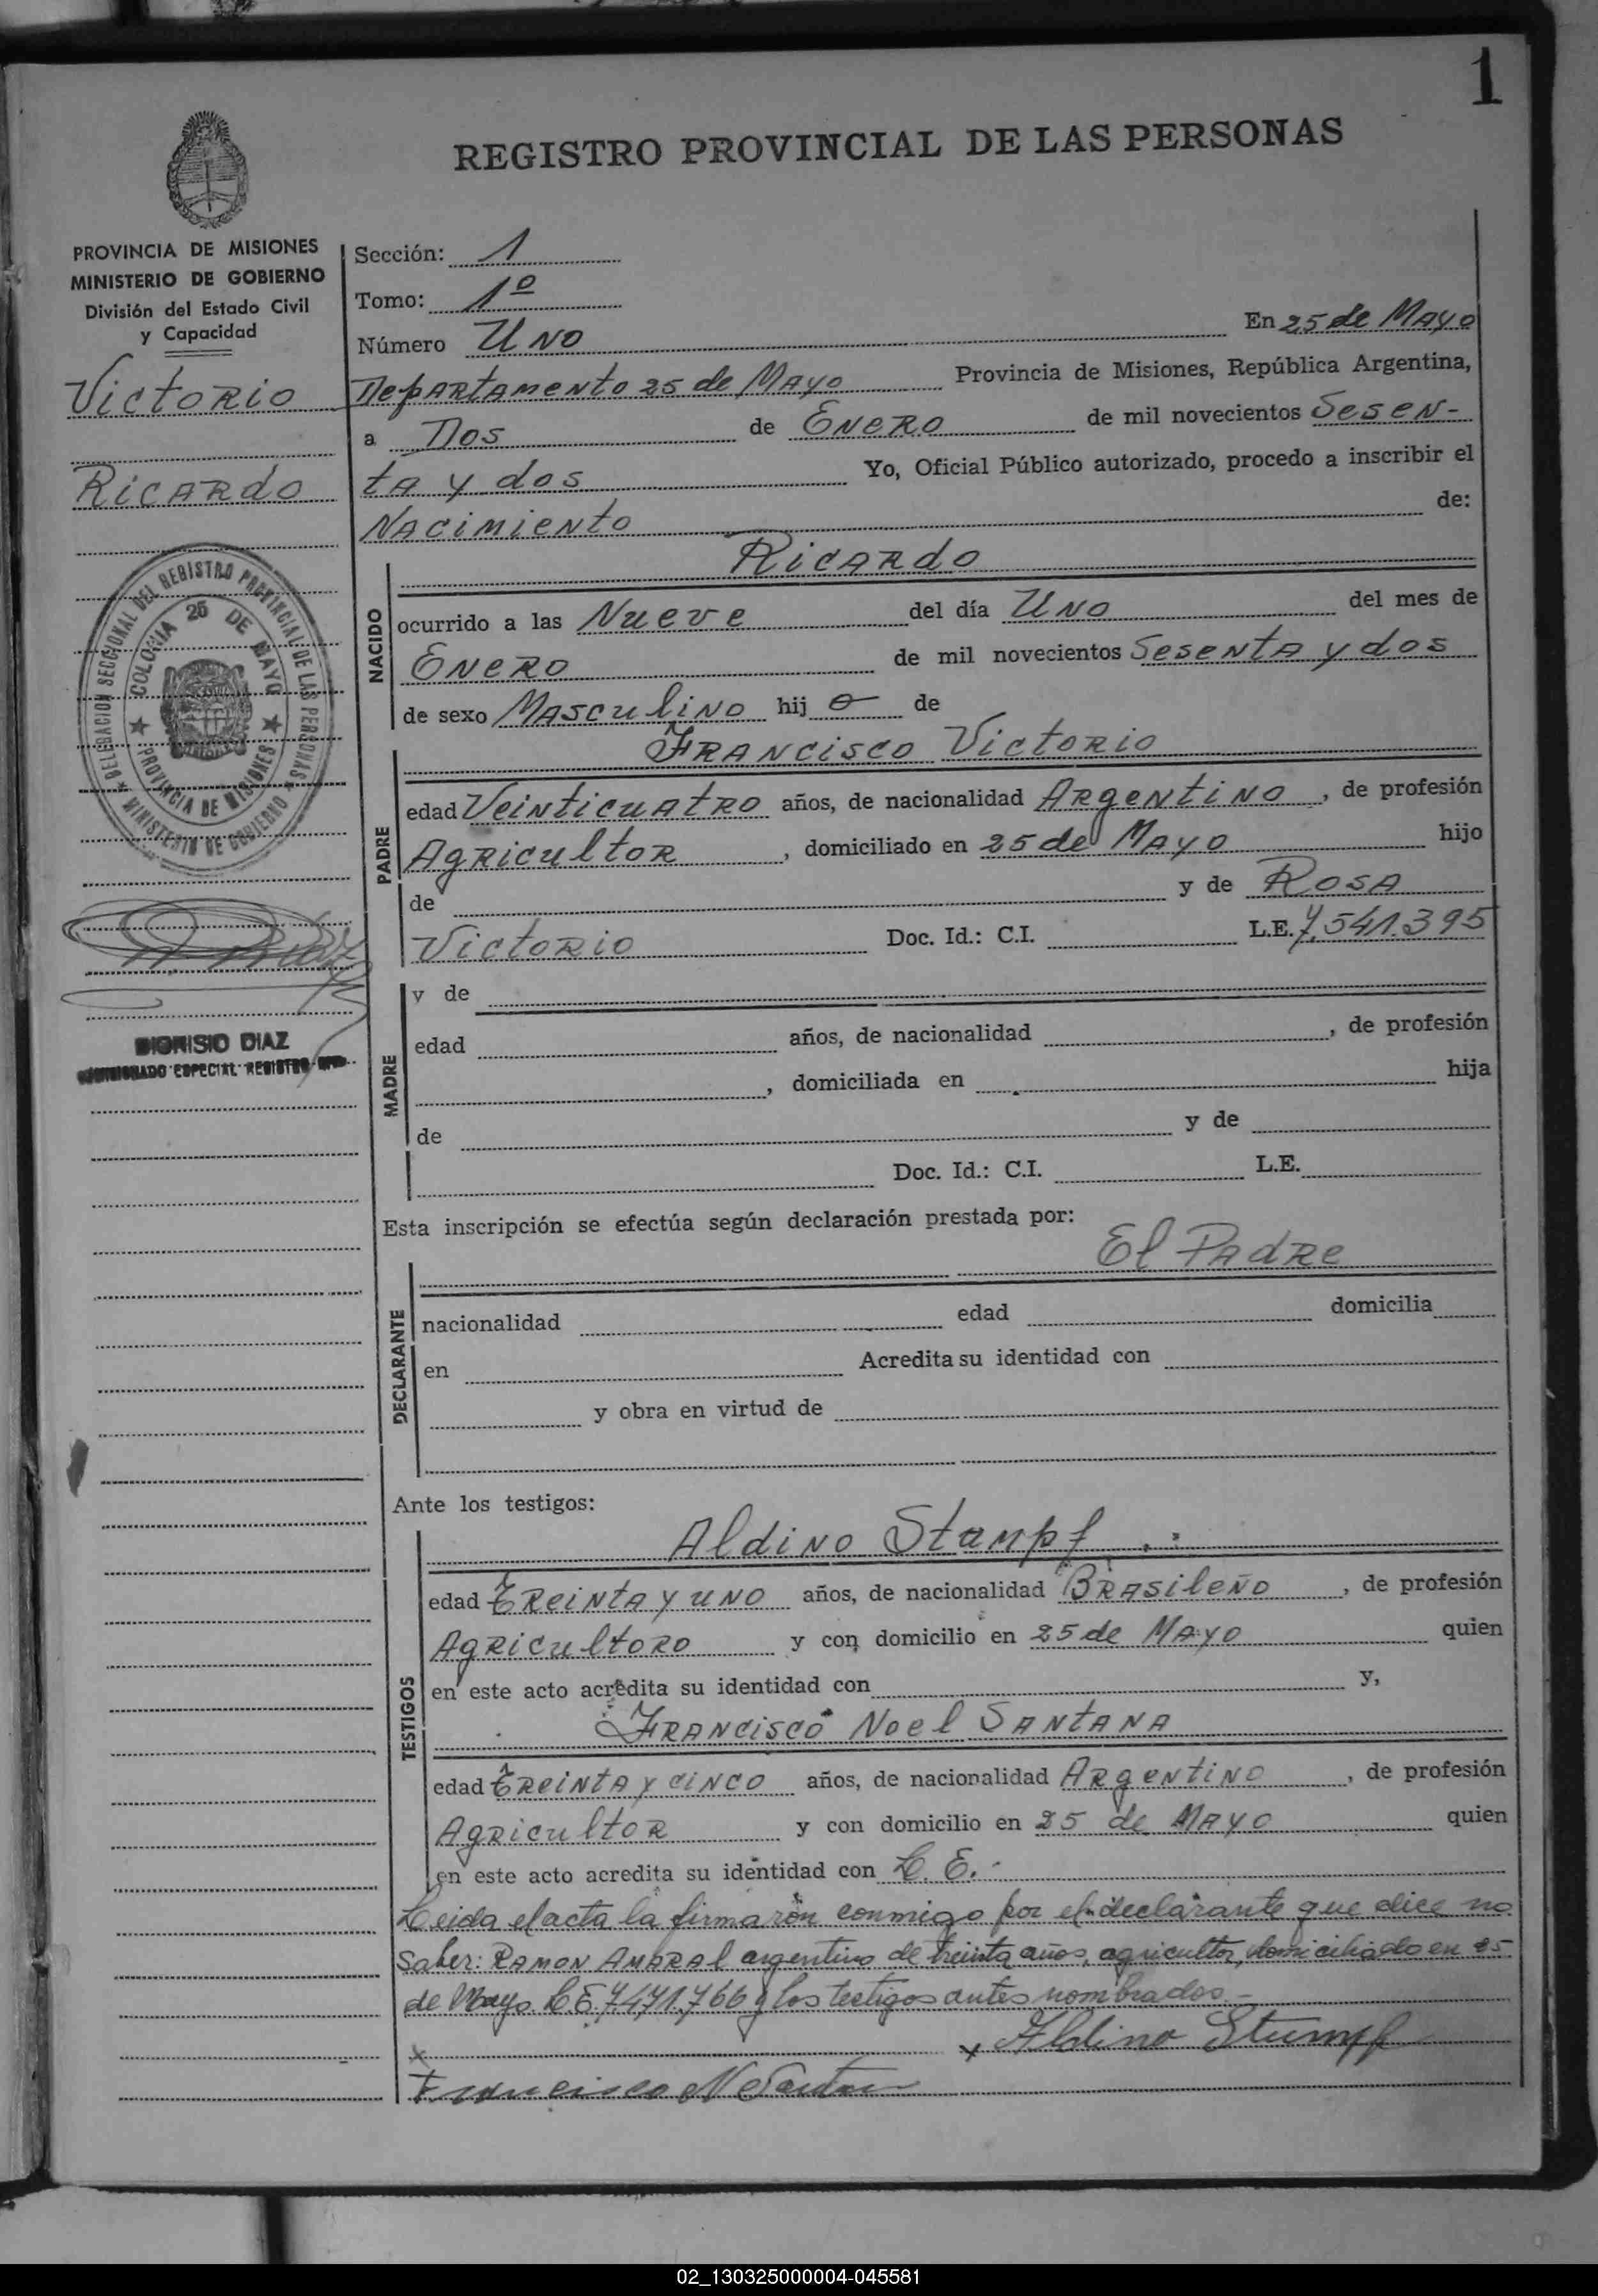 1
REGISTRO PROVINCIAL DE LAS PERSONAS
PROVINCIA DE MISIONES
MINISTERIO DE GOBIERNO
División del Estado Civil
y Capacidad
Victorio
Ricardo
DELEGACION SECCIONAL DEL REGISTRO PROVINCIAL DE LAS PERSONAS
MINISTERIO DE GOBIERNO
COLONIA 25 DE MAYO
PROVINCIA DE MISIONES
DIONISIO DIAZ
ESPECIAL REGISTRO
Sección: 1
Tomo: 1º
Número Uno En 25 de Mayo
Departamento 25 de Mayo Provincia de Misiones, República Argentina,
a Dos de Enero de mil novecientos Sesen-
ta y dos Yo, Oficial Público autorizado, procedo a inscribir el
Nacimiento de:
Ricardo
NACIDO
ocurrido a las Nueve del día Uno del mes de
Enero de mil novecientos Sesenta y dos
de sexo Masculino hij o de
Francisco Victorio
PADRE
edad Veinticuatro años, de nacionalidad Argentino, de profesión
Agricultor, domiciliado en 25 de Mayo hijo
de y de Rosa
Victorio Doc. Id.: C.I. L.E. 7.541.395
MADRE
y de
edad años, de nacionalidad , de profesión
, domiciliada en hija
de y de
Doc. Id.: C.I. L.E.
Esta inscripción se efectúa según declaración prestada por:
El Padre
DECLARANTE
nacionalidad edad domicilia
en Acredita su identidad con
y obra en virtud de
Ante los testigos:
Aldino Stumpf
TESTIGOS
edad Treinta y uno años, de nacionalidad Brasileño, de profesión
Agricultoro y con domicilio en 25 de Mayo quien
en este acto acredita su identidad con y,
Francisco Noel Santana
edad Treinta y cinco años, de nacionalidad Argentino, de profesión
Agricultor y con domicilio en 25 de Mayo quien
en este acto acredita su identidad con L. E.
Leida el acta la firmarón conmigo por el declarante que dice no
Saber: Ramon Amaral argentino de treinta años, agricultor, domiciliado en 25
de Mayo L E 7.471.766 y los testigos antes nombrados.-
x x Aldino Stumpf
Francisco N Santana
02_130325000004-045581